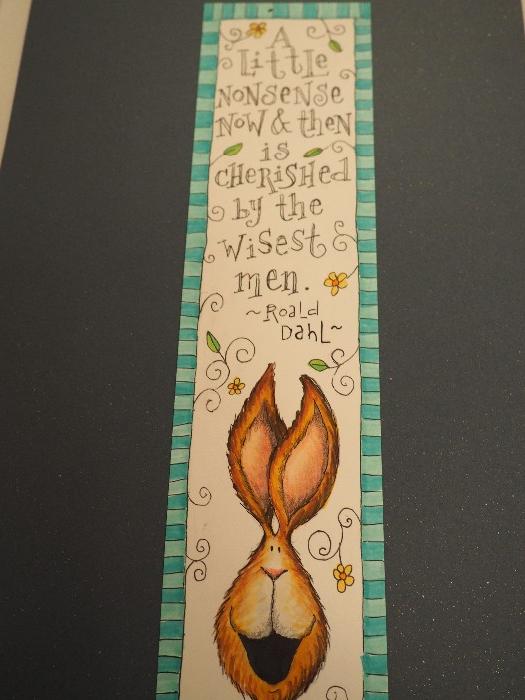 A
Little
NONSENSE
NOW & then
is
CHERISHED
by the
WiSEST
men.
~Roald
DahL~